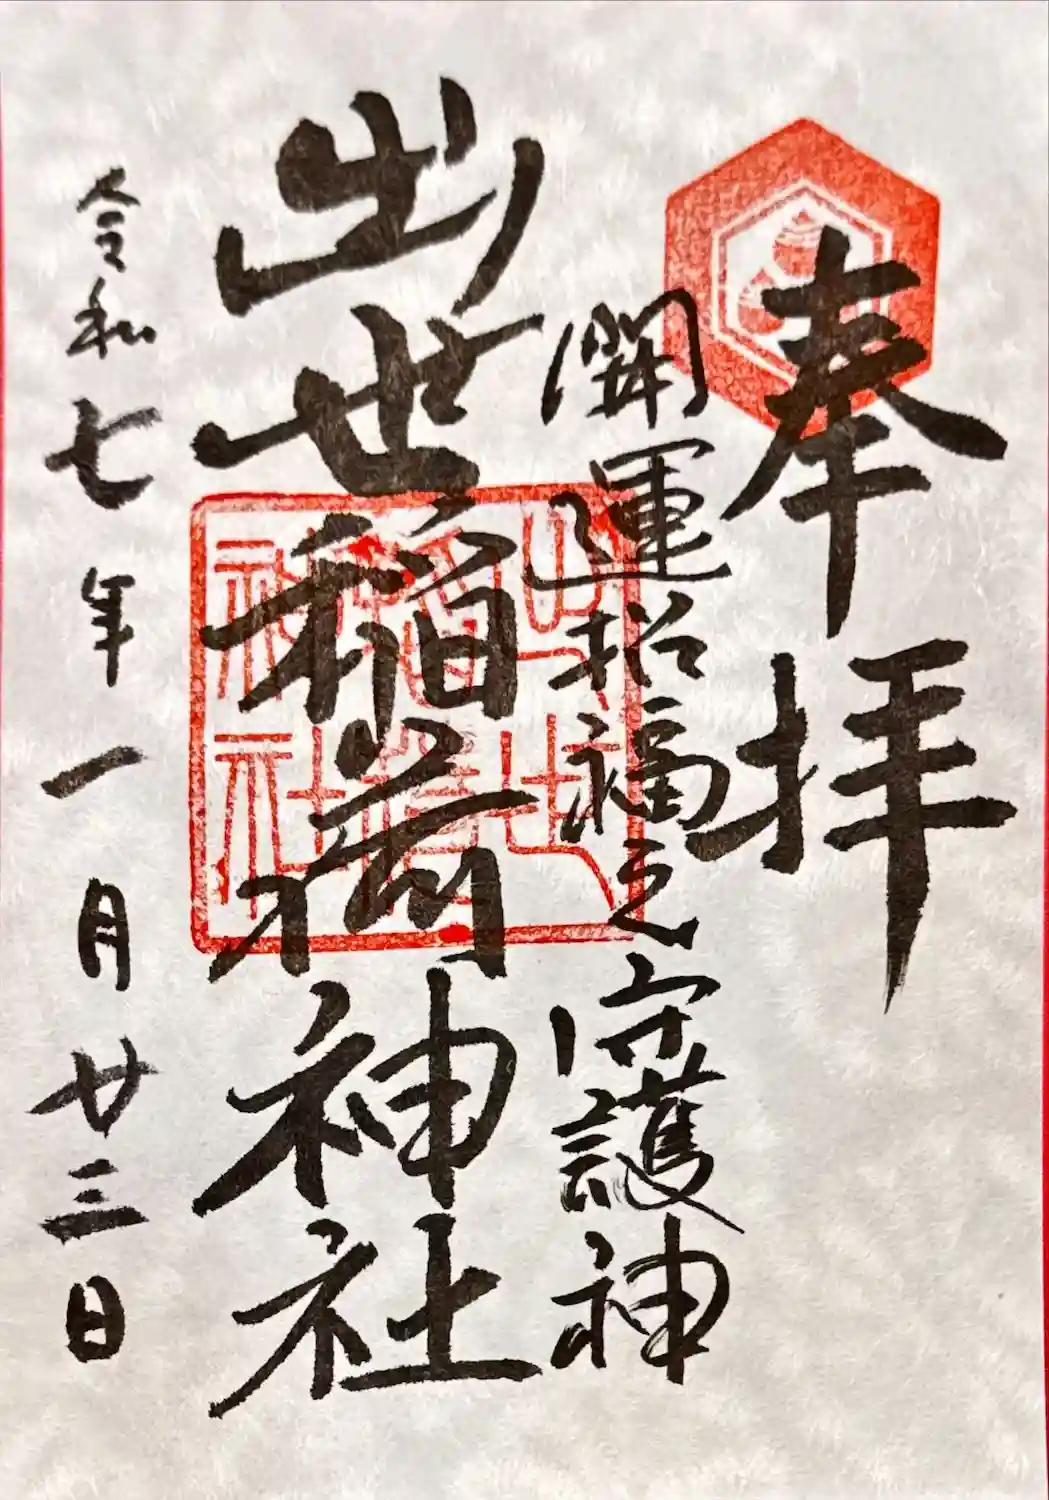 奉拝
開運招福之守護神
出世稲荷神社
出世稲荷神社
令和七年一月廿三日